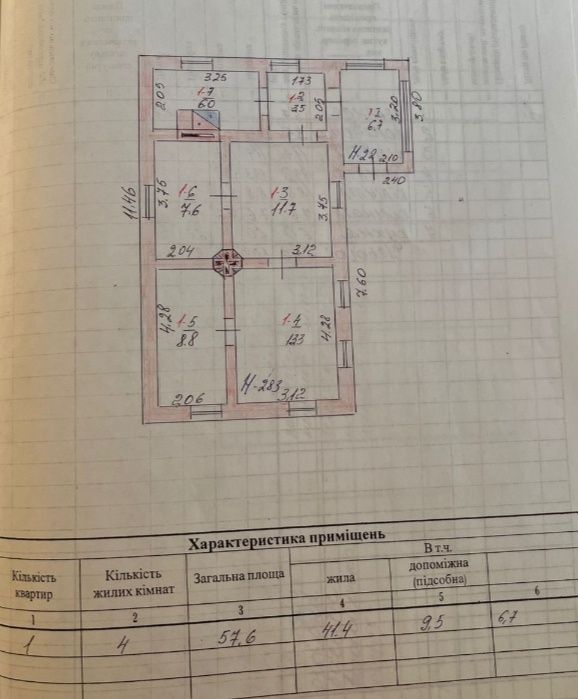 3.25
2.05
1-7
6.0
1.73
1-2
3.5
2.05
1-1
6.7
3.20
3.80
H-2.2
2.10
2.40
11.46
3.75
1-6
7.6
2.04
1-3
11.7
3.75
3.12
7.60
4.28
1-5
8.8
2.06
1-4
13.3
4.28
H-2.83
3.12
Характеристика приміщень
Кількість квартир
Кількість жилих кімнат
Загальна площа
В т.ч.
жила
допоміжна (підсобна)
1 2 3 4 5 6
1 4 57,6 41.4 9,5 6,7